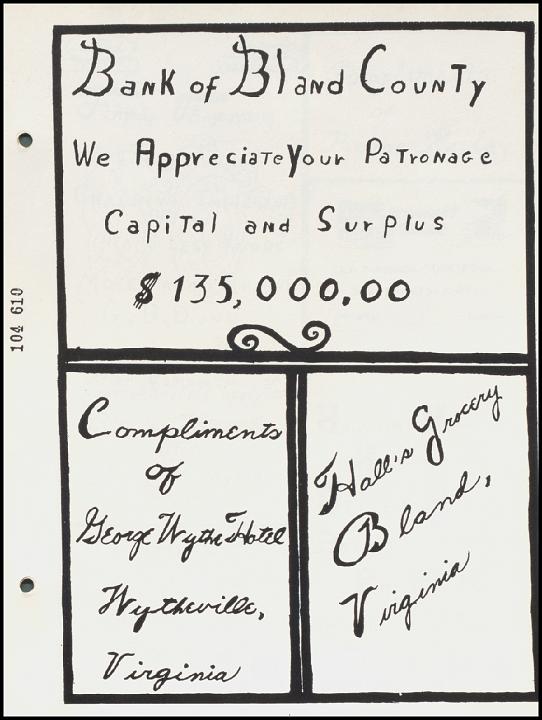 Bank of Bland County
We Appreciate Your Patronage
Capital and Surplus
$135,000.00
104 610
Compliments
of
George Wythe Hotel
Wytheville,
Virginia
Hall's Grocery
Bland,
Virginia